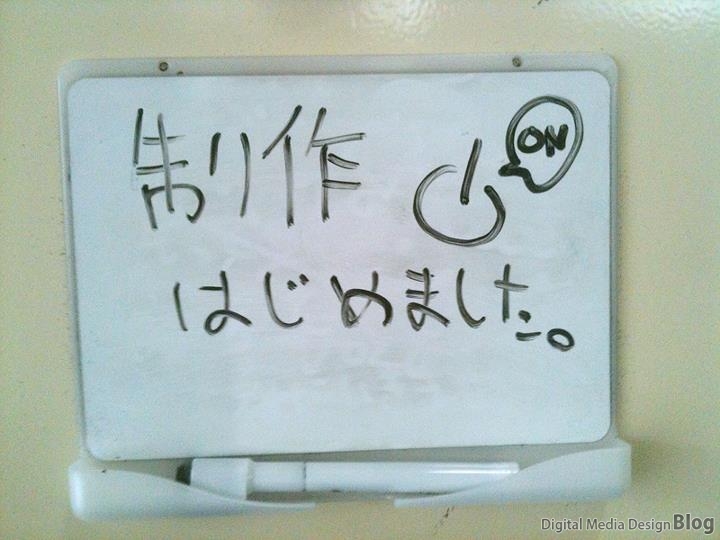 制作
ON
はじめました。
Digital Media Design Blog